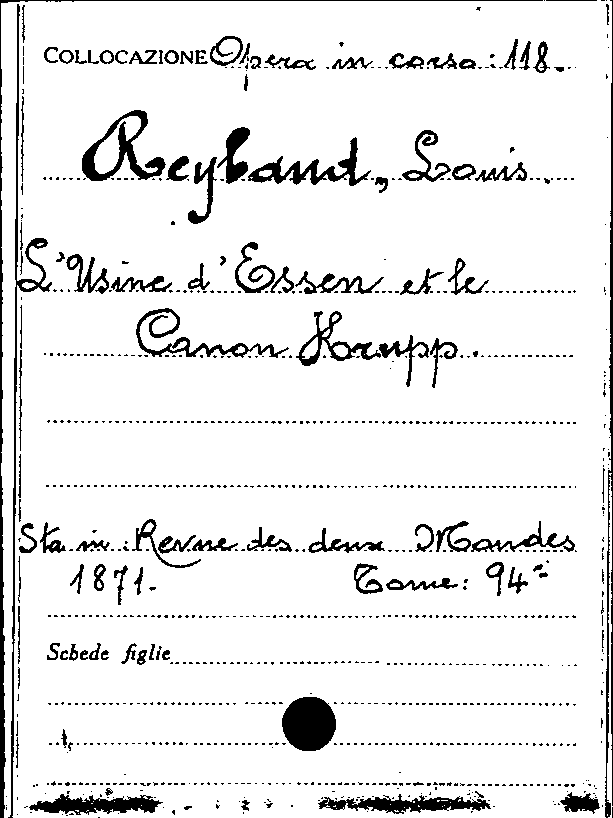 COLLOCAZIONE Opera in corso: 118.
Reybaud, Louis.
L'Usine d'Essen et le
Canon Krupp.
Sta in: Revue des deux Mondes
1871. Tome: 94
Schede figlie